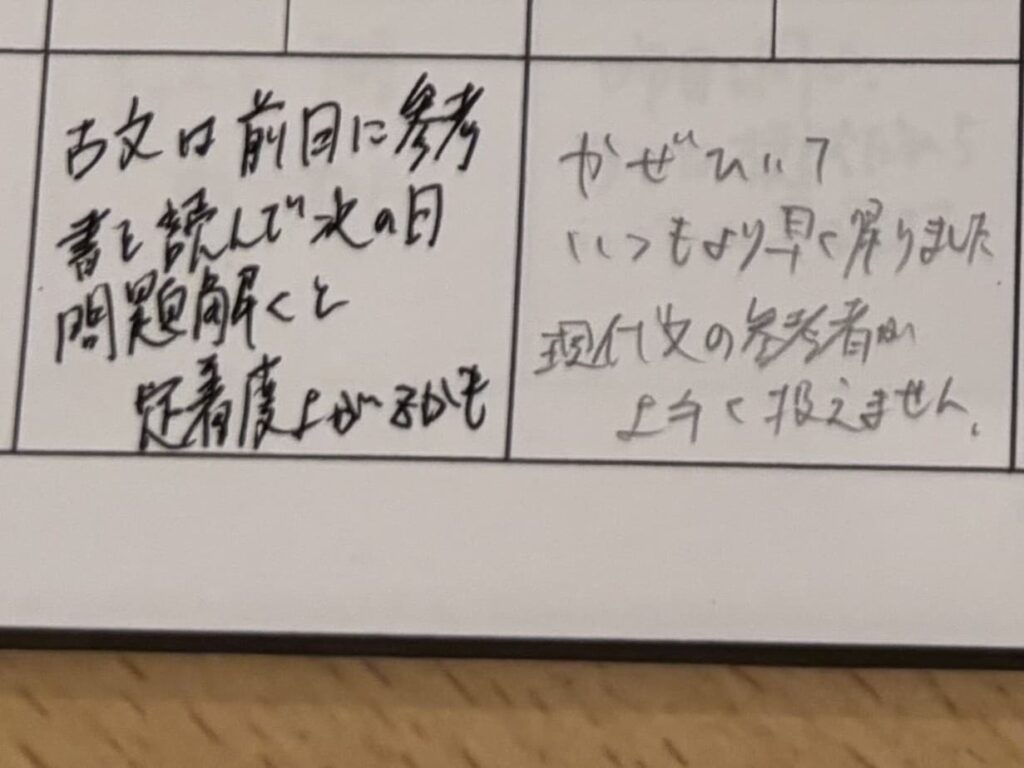 古文は前日に参考
書を読んで次の日
問題解くと
定着度上がるかも
かぜひいて
いつもより早く帰りました
現代文の参考書が
上手く扱えません。